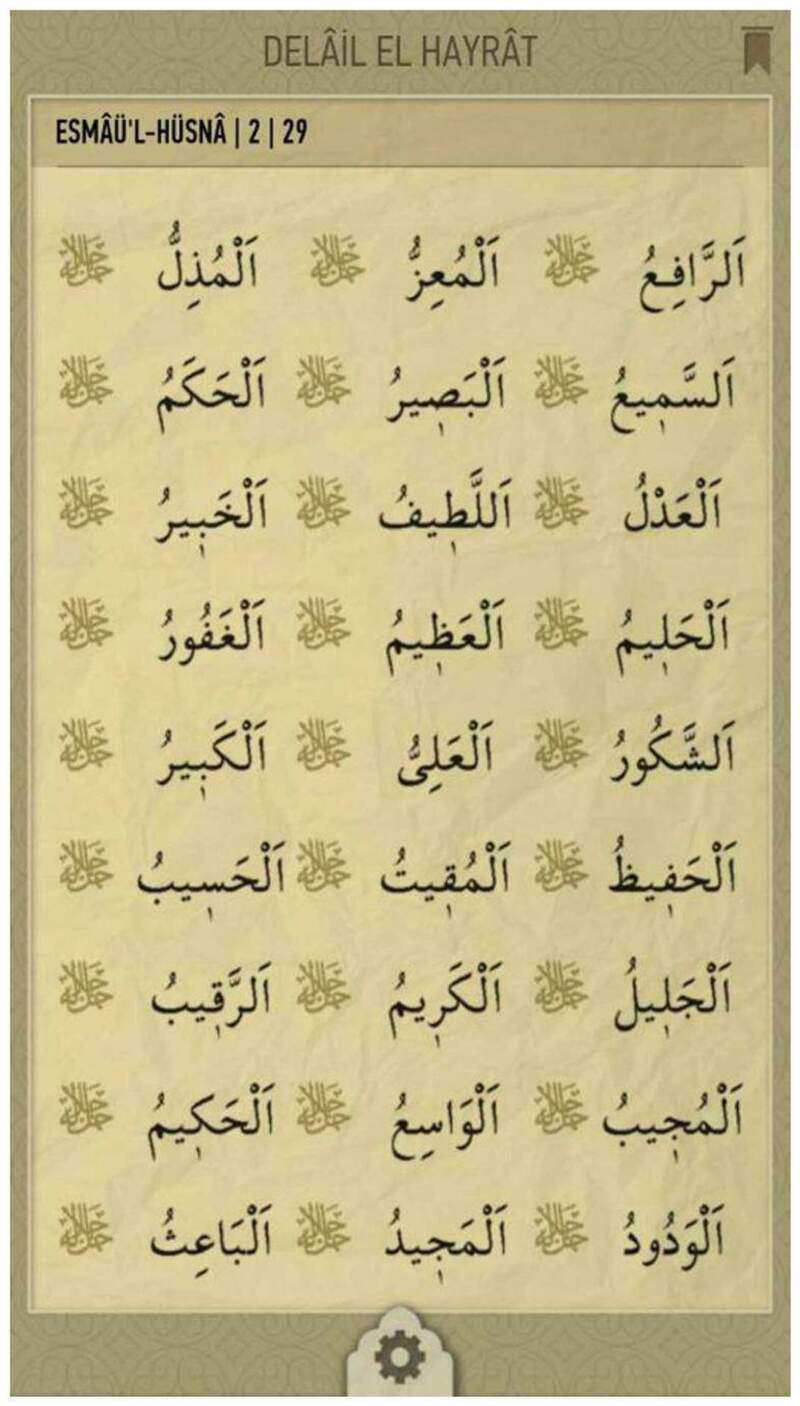 DELÂİL EL HAYRÂT
ESMÂÜ'L-HÜSNÂ | 2 | 29
اَلرَّافِعُ جل جلاله اَلْمُعِزُّ جل جلاله اَلْمُذِلُّ جل جلاله
اَلسَّمٖيعُ جل جلاله اَلْبَصٖيرُ جل جلاله اَلْحَكَمُ جل جلاله
اَلْعَدْلُ جل جلاله اَللَّطٖيفُ جل جلاله اَلْخَبٖيرُ جل جلاله
اَلْحَلٖيمُ جل جلاله اَلْعَظٖيمُ جل جلاله اَلْغَفُورُ جل جلاله
اَلشَّكُورُ جل جلاله اَلْعَلِىُّ جل جلاله اَلْكَبٖيرُ جل جلاله
اَلْحَفٖيظُ جل جلاله اَلْمُقٖيتُ جل جلاله اَلْحَسٖيبُ جل جلاله
اَلْجَلٖيلُ جل جلاله اَلْكَرٖيمُ جل جلاله اَلرَّقٖيبُ جل جلاله
اَلْمُجٖيبُ جل جلاله اَلْوَاسِعُ جل جلاله اَلْحَكٖيمُ جل جلاله
اَلْوَدُودُ جل جلاله اَلْمَجٖيدُ جل جلاله اَلْبَاعِثُ جل جلاله